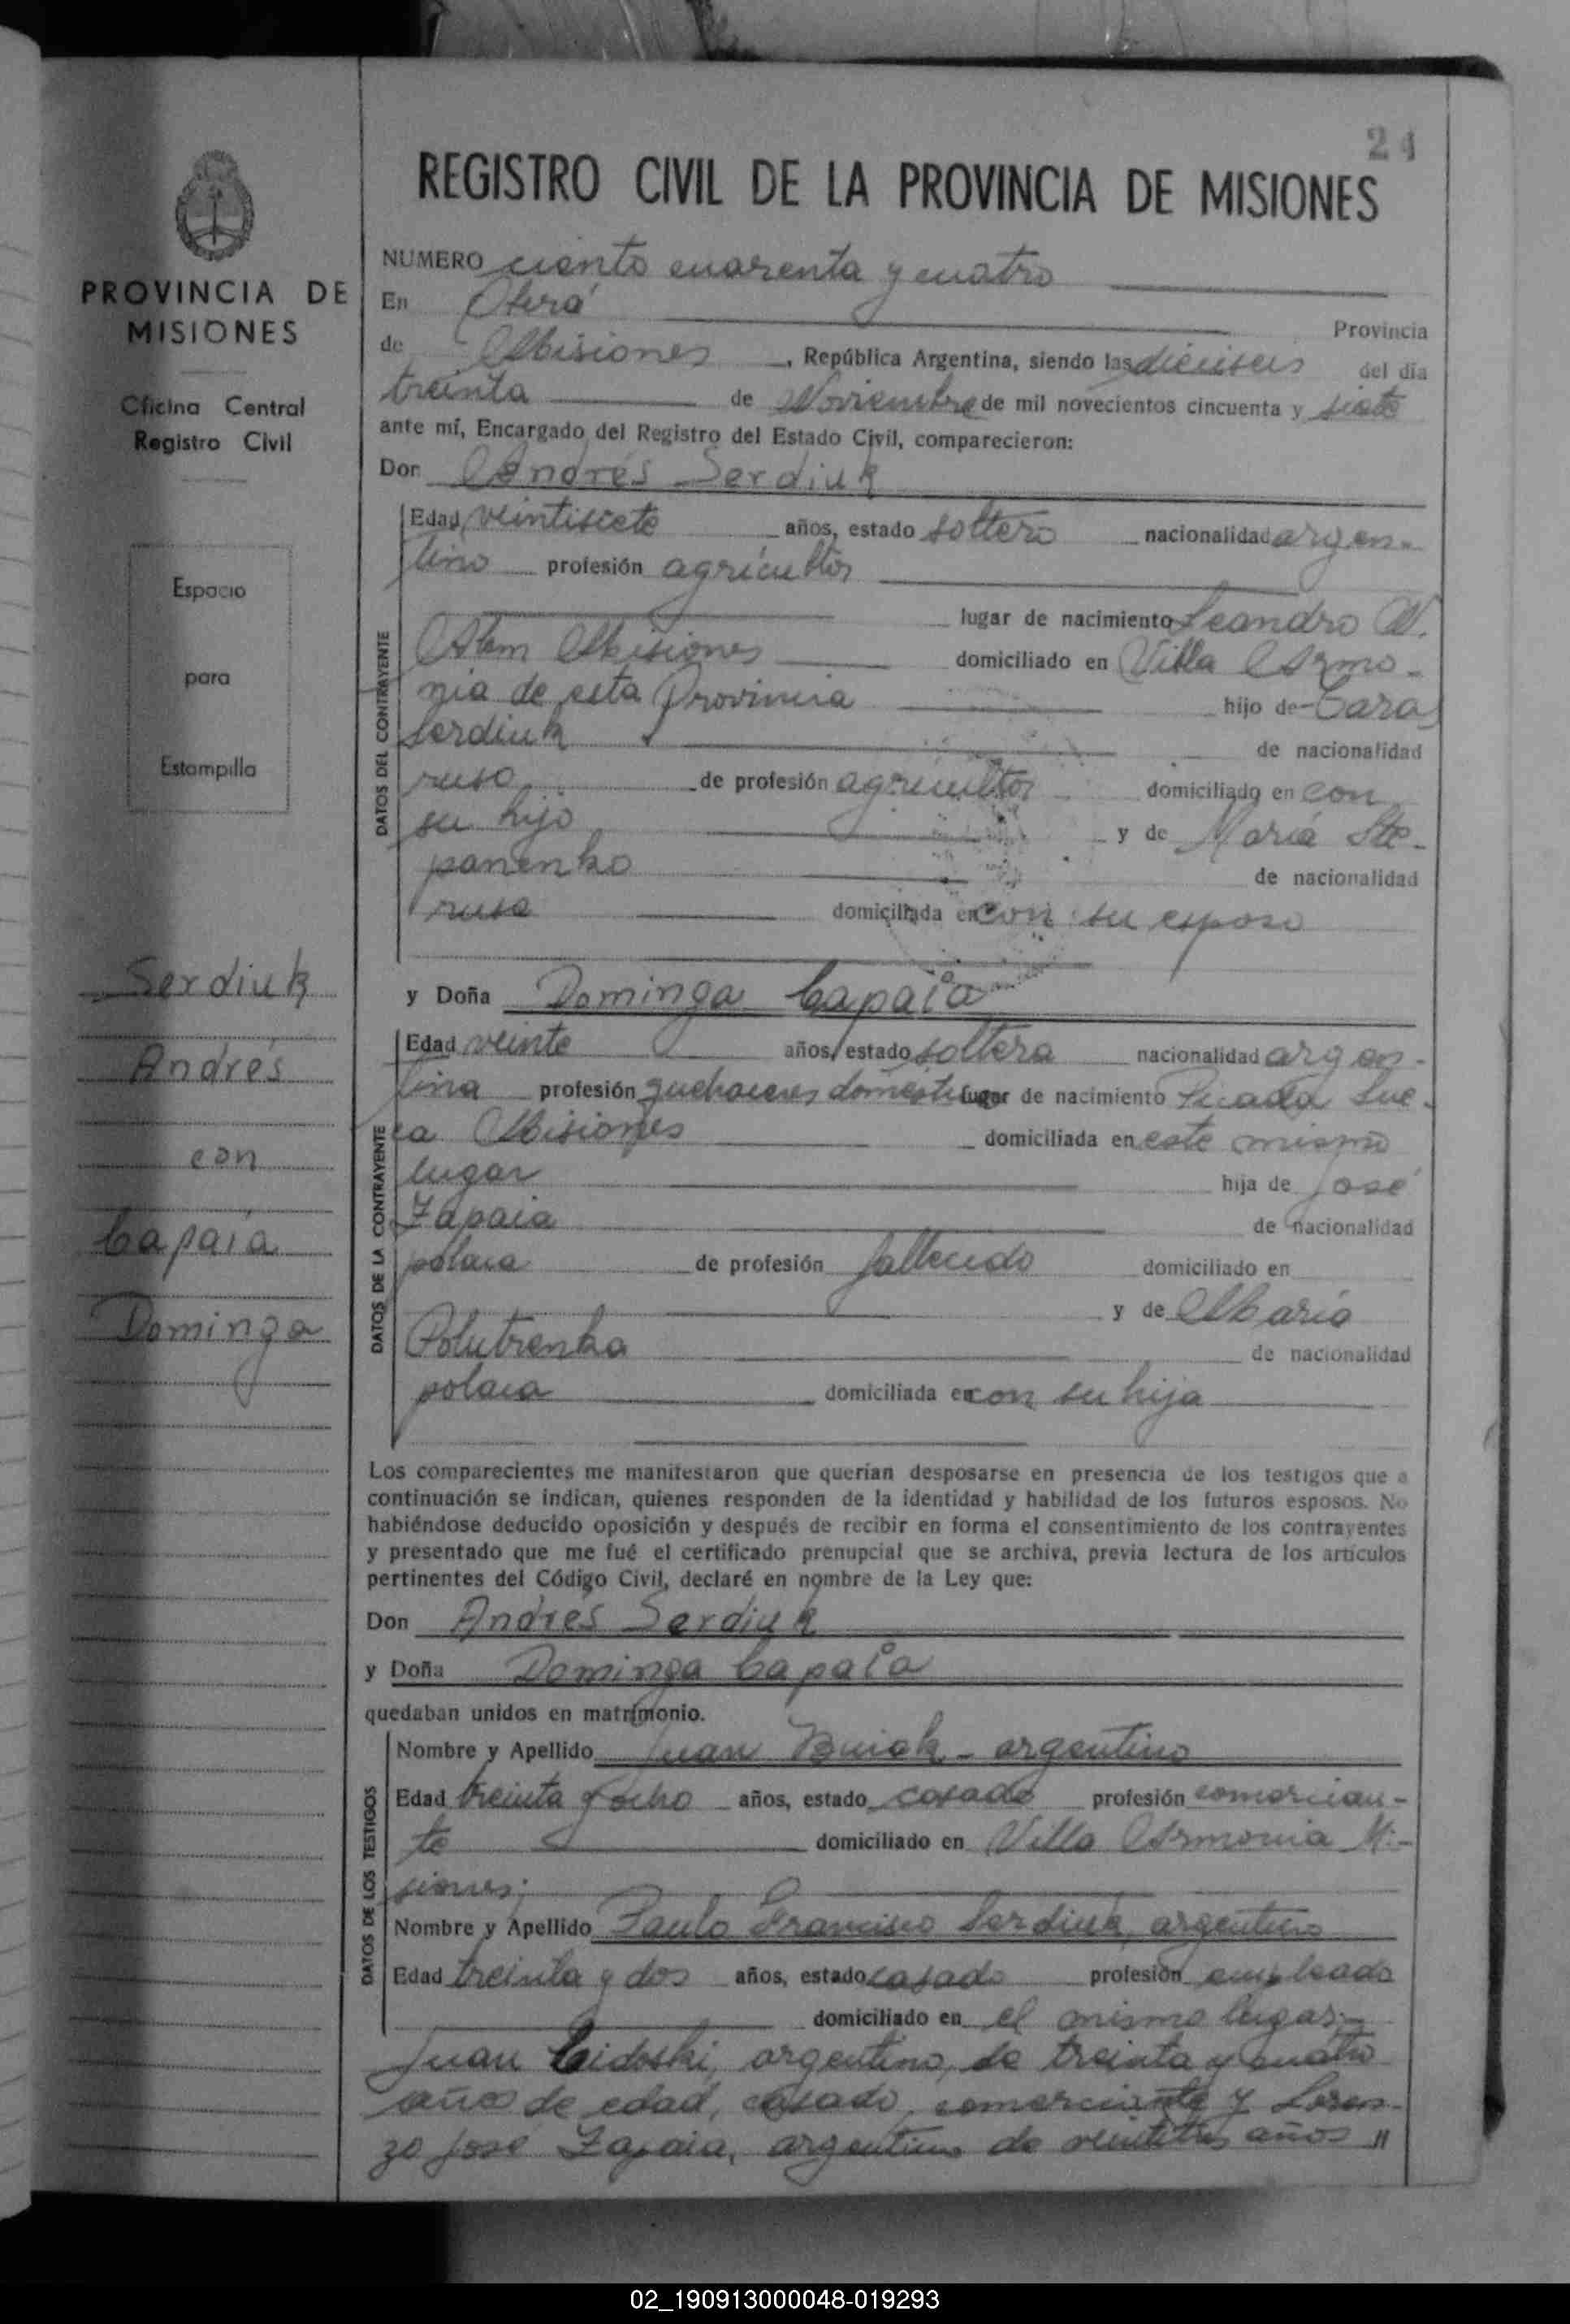 24
REGISTRO CIVIL DE LA PROVINCIA DE MISIONES
PROVINCIA DE
MISIONES
Oficina Central
Registro Civil
Espacio
para
Estampilla
Serdiuk
Andrés
con
Capaia
Dominga
NUMERO ciento cuarenta y cuatro
En Oberá Provincia
de Misiones, República Argentina, siendo las dieciseis del día
treinta de Noviembre de mil novecientos cincuenta y siete
ante mí, Encargado del Registro del Estado Civil, comparecieron:
Don Andrés Serdiuk
DATOS DEL CONTRAYENTE
Edad veintisiete años, estado soltero nacionalidad argen-
tino profesión agricultor
lugar de nacimiento Leandro N.
Alem Misiones domiciliado en Villa Armo-
nia de esta Provincia hijo de Tara
Serdiuk de nacionalidad
ruso de profesión agricultor domiciliado en con
su hijo y de María Ste-
panenko de nacionalidad
rusa domiciliada en con su esposo
y Doña Dominga Capaia
DATOS DE LA CONTRAYENTE
Edad veinte años, estado soltera nacionalidad argen-
tina profesión quehaceres domesticos lugar de nacimiento Picada Sue-
ca Misiones domiciliada en este mismo
lugar hija de José
Zapaia de nacionalidad
polaca de profesión fallecido domiciliado en
y de María
Polutrenko de nacionalidad
polaca domiciliada en con su hija
Los comparecientes me manifestaron que querían desposarse en presencia de los testigos que a
continuación se indican, quienes responden de la identidad y habilidad de los futuros esposos. No
habiéndose deducido oposición y después de recibir en forma el consentimiento de los contrayentes
y presentado que me fué el certificado prenupcial que se archiva, previa lectura de los artículos
pertinentes del Código Civil, declaré en nombre de la Ley que:
Don Andrés Serdiuk
y Doña Dominga Capaia
quedaban unidos en matrimonio.
DATOS DE LOS TESTIGOS
Nombre y Apellido Juan Buiak - argentino
Edad treinta y ocho años, estado casado profesión comercian-
te domiciliado en Villa Armonia Mi-
siones;
Nombre y Apellido Paulo Francisco Serdiuk, argentino
Edad treinta y dos años, estado casado profesión empleado
domiciliado en el mismo lugar;
Juan Cidoski, argentino, de treinta y cuatro
años de edad, casado, comerciante y Loren-
zo José Zapaia, argentino de veintitres años "
02_190913000048-019293